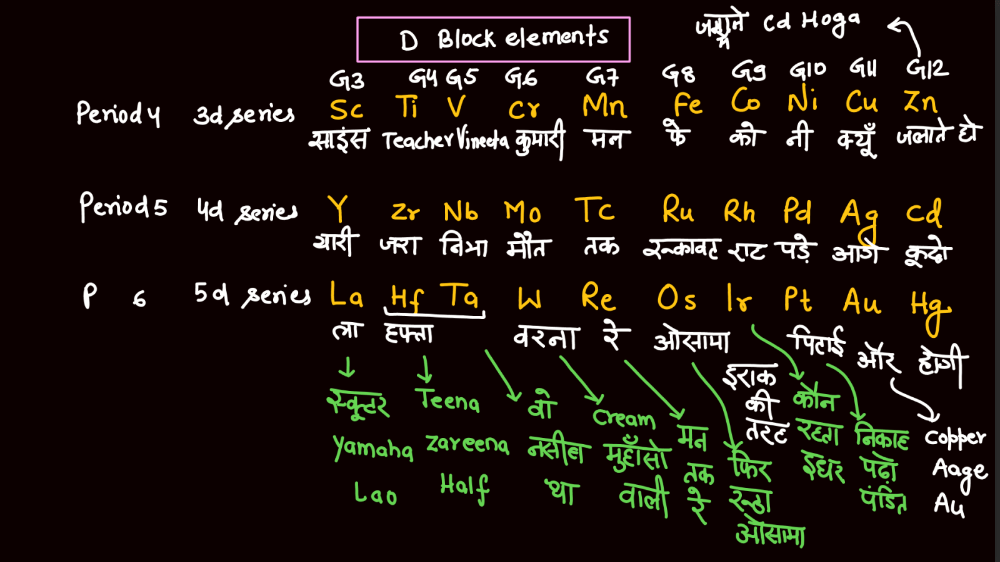 जलाने Cd Hoga
में
D Block elements
G3 G4 G5 G6 G7 G8 G9 G10 G11 G12
Period 4 3d series Sc Ti V Cr Mn Fe Co Ni Cu Zn
साइंस Teacher Vineeta कुमारी मन फे को नी क्यूँ जलाते हो
Period 5 4d series Y Zr Nb Mo Tc Ru Rh Pd Ag Cd
यारी जरा निभा मौत तक रुकावट राट पड़े आगे कूदो
P 6 5d series La Hf Ta W Re Os Ir Pt Au Hg
ला हफ्ता वरना रे ओसामा पिटाई और होगी
इराक
की
तरट
स्कूटर Teena वो Cream मन फिर कौन निकाह Copper
Yamaha Zareena नसीब मुहाँसो तक रुठा रहता पढ़ो Aage
Lao Half था वाली रे ओसामा इधर पंडित Au